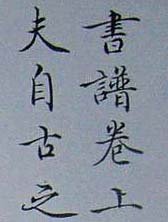 書譜卷上
夫自古之